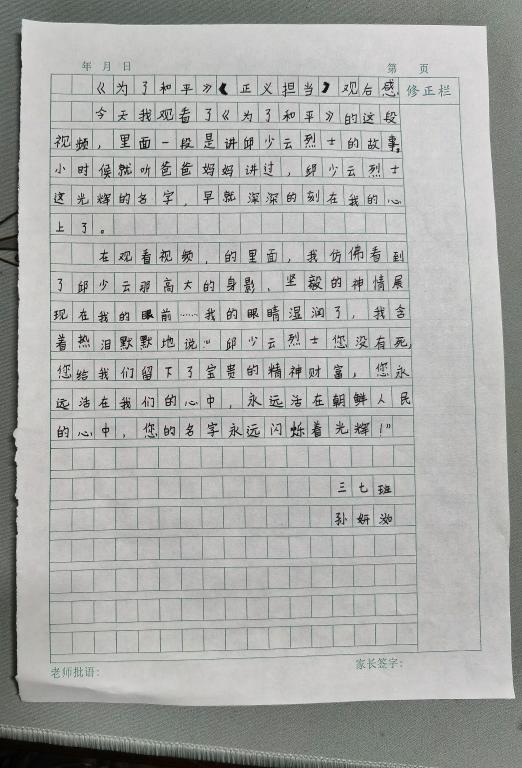 年 月 日 第 页
《为了和平》《正义担当》观后感
修正栏
今天我观看了《为了和平》的这段
视频，里面一段是讲邱少云烈士的故事。
小时候就听爸爸妈妈讲过，邱少云烈士
这光辉的名字，早就深深的刻在我的心
上了。
在观看视频，的里面，我仿佛看到
了邱少云那高大的身影、坚毅的神情展
现在我的眼前……我的眼睛湿润了，我含
着热泪默默地说：“邱少云烈士您没有死，
您给我们留下了宝贵的精神财富，您永
远活在我们的心中，永远活在朝鲜人民
的心中，您的名字永远闪烁着光辉！”
三七班
孙妍
老师批语： 家长签字：